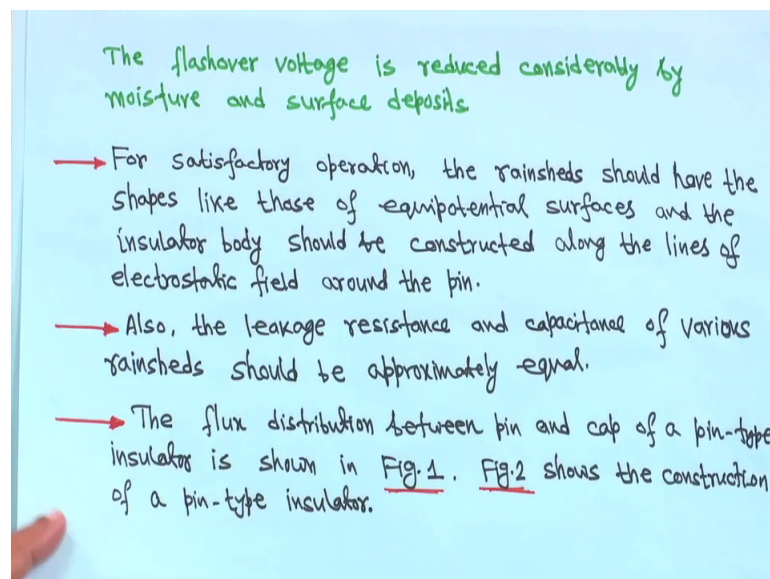 The flashover voltage is reduced considerably by
moisture and surface deposits
For satisfactory operation, the rainsheds should have the
shapes like those of equipotential surfaces and the
insulator body should be constructed along the lines of
electrostatic field around the pin.
Also, the leakage resistance and capacitance of various
rainsheds should be approximately equal.
The flux distribution between pin and cap of a pin-type
insulator is shown in Fig.1. Fig.2 shows the construction
of a pin-type insulator.